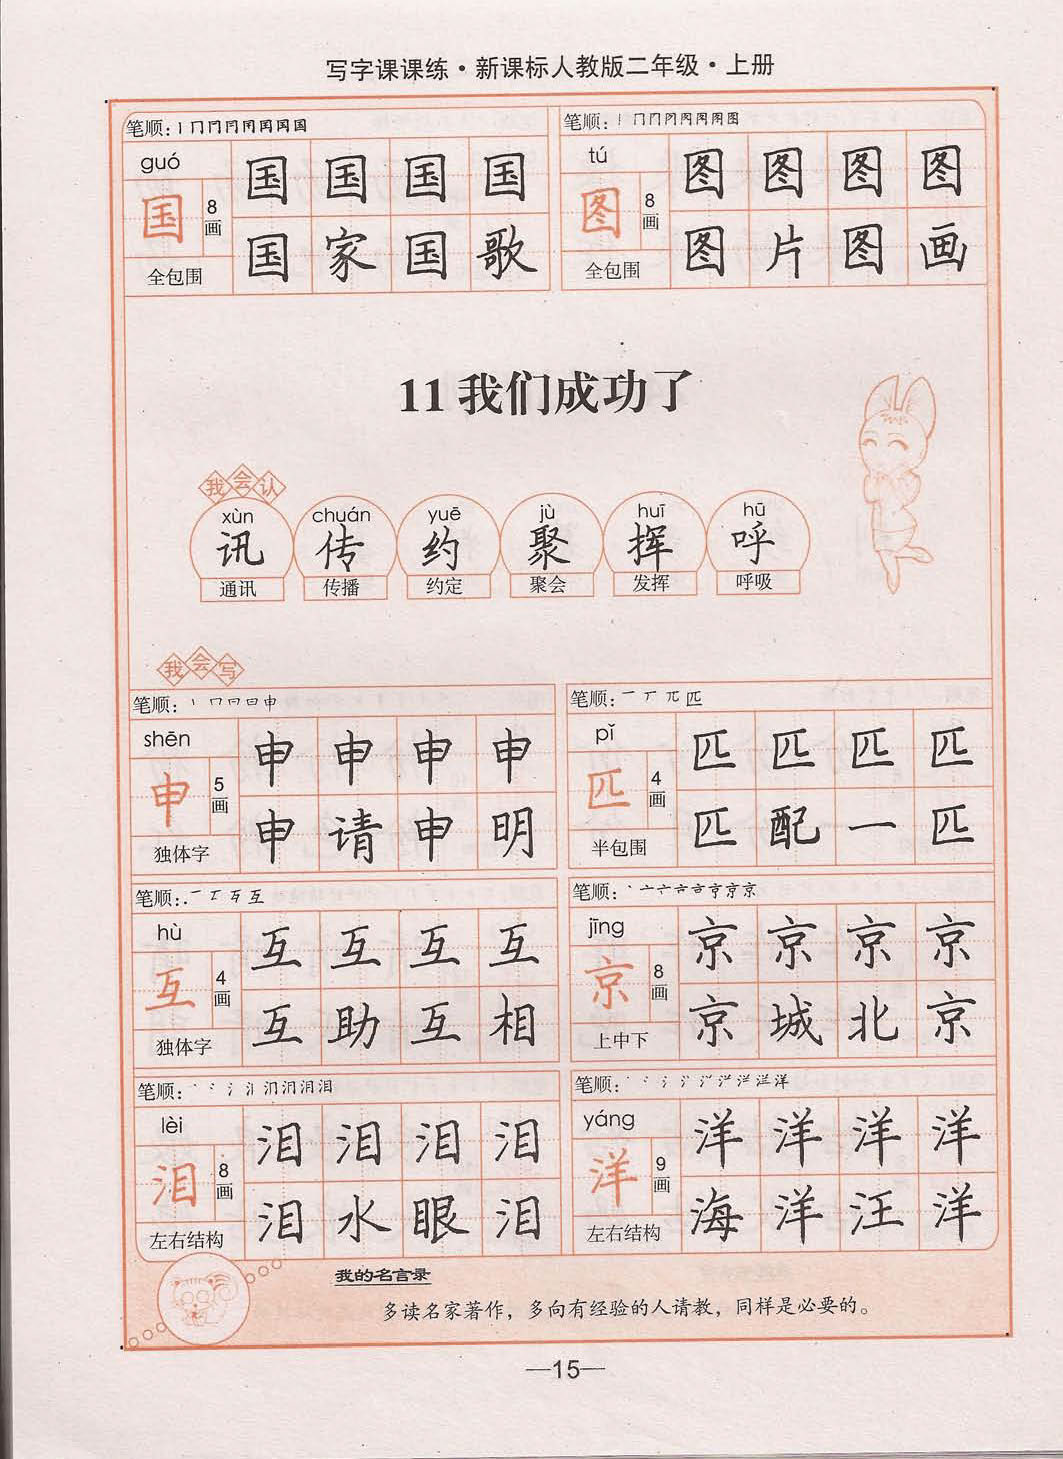 写字课课练·新课标人教版二年级·上册
笔顺:丨冂冂冃囯国国国
guó
国 国 国 国
国
8画
国 家 国 歌
全包围
笔顺:
tú
图 图 图 图
图
8画
图 片 图 画
全包围
11我们成功了
我会认
xùn chuán yuē jù huī hū
讯 传 约 聚 挥 呼
通讯 传播 约定 聚会 发挥 呼吸
我会写
笔顺:丨 冂 日 日 申
shēn
申 申 申 申
申
5画
申 请 申 明
独体字
笔顺:一 丆 兀 匹
pǐ
匹 匹 匹 匹
匹
4画
匹 配 一 匹
半包围
笔顺:
hù
互 互 互 互
互
4画
互 助 互 相
独体字
笔顺:
jīng
京 京 京 京
京
8画
京 城 北 京
上中下
笔顺:
lèi
泪 泪 泪 泪
泪
8画
泪 水 眼 泪
左右结构
笔顺:
yáng
洋 洋 洋 洋
洋
9画
海 洋 汪 洋
左右结构
我的名言录
多读名家著作，多向有经验的人请教，同样是必要的。
—15—